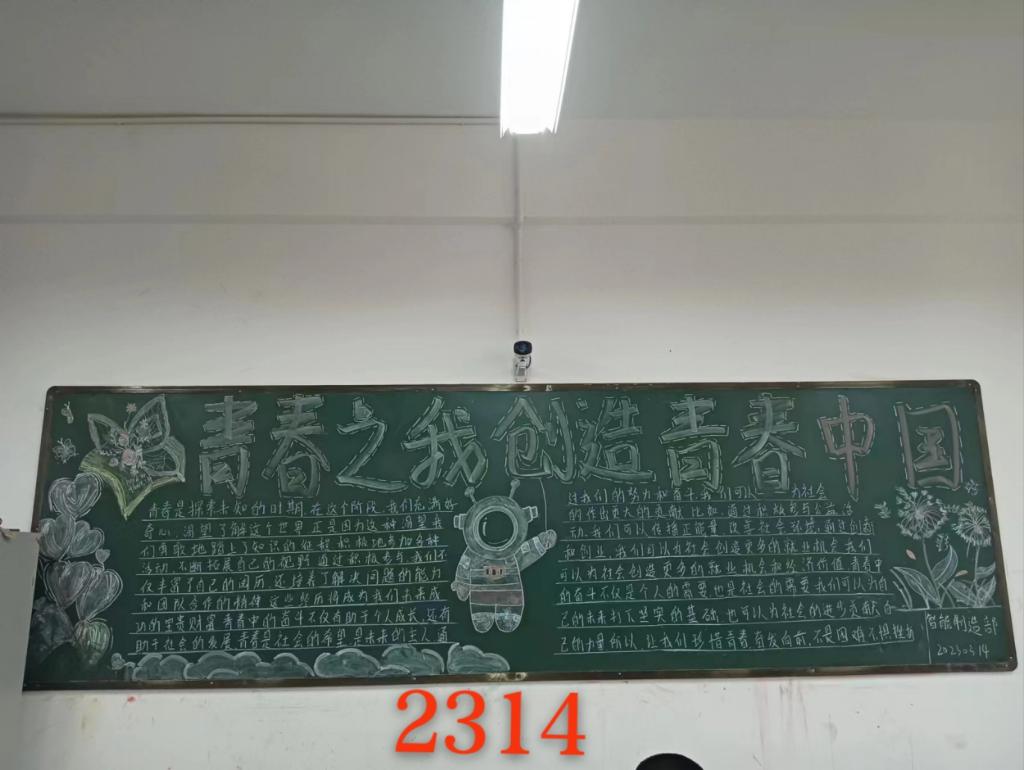 青春之我创造青春中国
青春是探索未知的时期 在这个阶段 我们充满好
奇心,渴望了解这个世界 正是因为这种渴望 我
们勇敢地踏上了知识的征程 积极地参加各种
活动,不断拓展自己的视野 通过积极参与 我们不
仅丰富了自己的阅历 还培养了解决问题的能力
和团队合作的精神 这些经历将成为我们未来成
功的宝贵财富 青春中的奋斗不仅有助于个人成长 还有
助于社会的发展 青春是社会的希望 是未来的主人 通
过我们的努力和奋斗 我们可以 为社会
的作出更大的贡献 比如 通过积极参与公益活
动,我们可以传播正能量
和创业,我们可以为社会创造更多的就业机会 我们
可以为社会创造更多的就业机会和经济价值 青春中
的奋斗不仅是个人的需要 也是社会的需要 我们可以为自
己的未来打下坚实的基础 也可以为社会的进步贡献自
己的力量 所以 让我们珍惜青春 奋发向前 不畏困难 不惧挑战
智能制造部
20230314
2314